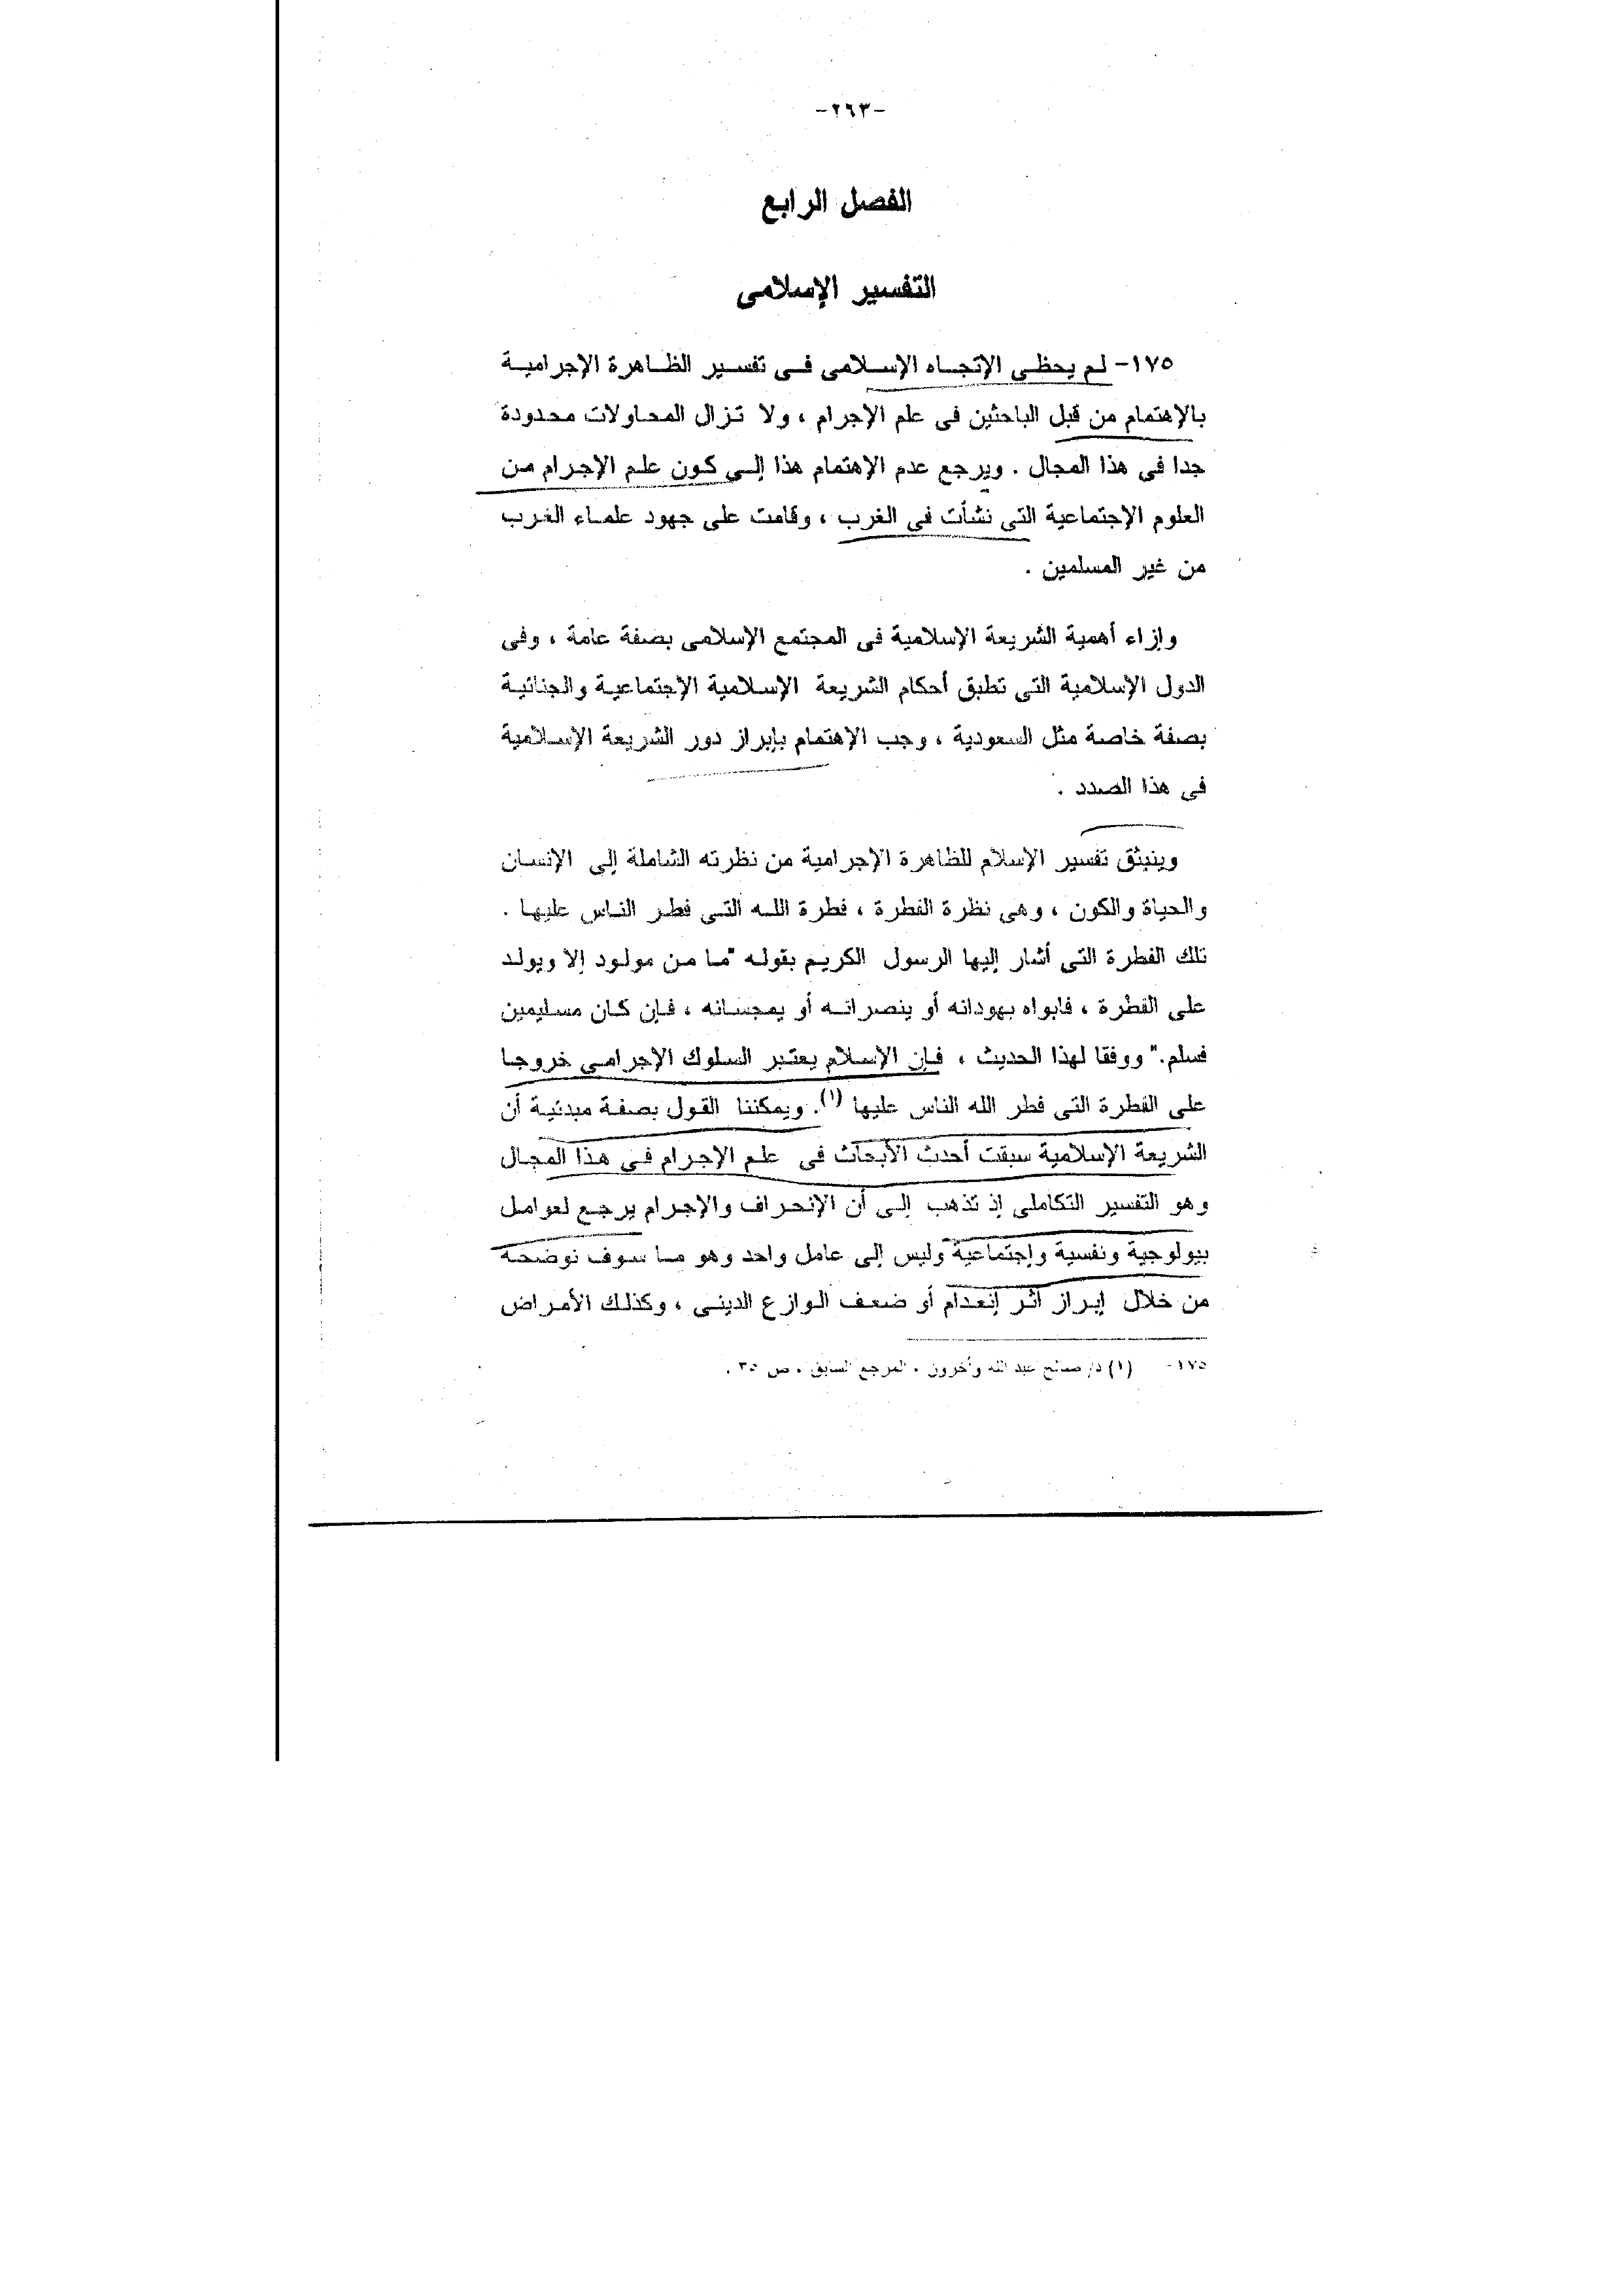 -٢٦٣-
الفصل الرابع
التفسير الإسلامى
١٧٥- لم يحظى الإتجاه الإسلامى فى تفسير الظاهرة الإجرامية
بالإهتمام من قبل الباحثين فى علم الإجرام ، ولا تزال المحاولات محدودة
جدا فى هذا المجال . ويرجع عدم الإهتمام هذا إلى كون علم الإجرام من
العلوم الإجتماعية التى نشأت فى الغرب ، وقامت على جهود علماء الغرب
من غير المسلمين .
وإزاء أهمية الشريعة الإسلامية فى المجتمع الإسلامى بصفة عامة ، وفى
الدول الإسلامية التى تطبق أحكام الشريعة الإسلامية الإجتماعية والجنائية
بصفة خاصة مثل السعودية ، وجب الإهتمام بإبراز دور الشريعة الإسلامية
فى هذا الصدد .
وينبثق تفسير الإسلام للظاهرة الإجرامية من نظرته الشاملة إلى الإنسان
والحياة والكون ، وهى نظرة الفطرة ، فطرة الله التى فطر الناس عليها .
تلك الفطرة التى أشار إليها الرسول الكريم بقوله "ما من مولود إلا ويولد
على الفطرة ، فابواه يهودانه أو ينصرانه أو يمجسانه ، فإن كان مسليمين
فسلم." ووفقا لهذا الحديث ، فإن الإسلام يعتبر السلوك الإجرامى خروجا
على الفطرة التى فطر الله الناس عليها (١). ويمكننا القول بصفة مبدئية أن
الشريعة الإسلامية سبقت أحدث الأبحاث فى علم الإجرام فى هذا المجال
وهو التفسير التكاملى إذ تذهب إلى أن الإنحراف والإجرام يرجع لعوامل
بيولوجية ونفسية وإجتماعية وليس إلى عامل واحد وهو ما سوف نوضحه
من خلال إبراز أثر إنعدام أو ضعف الوازع الدينى ، وكذلك الأمراض
١٧٥- (١) د/ صالح عبد الله وأخرون ، المرجع السابق ، ص ٣٥ .